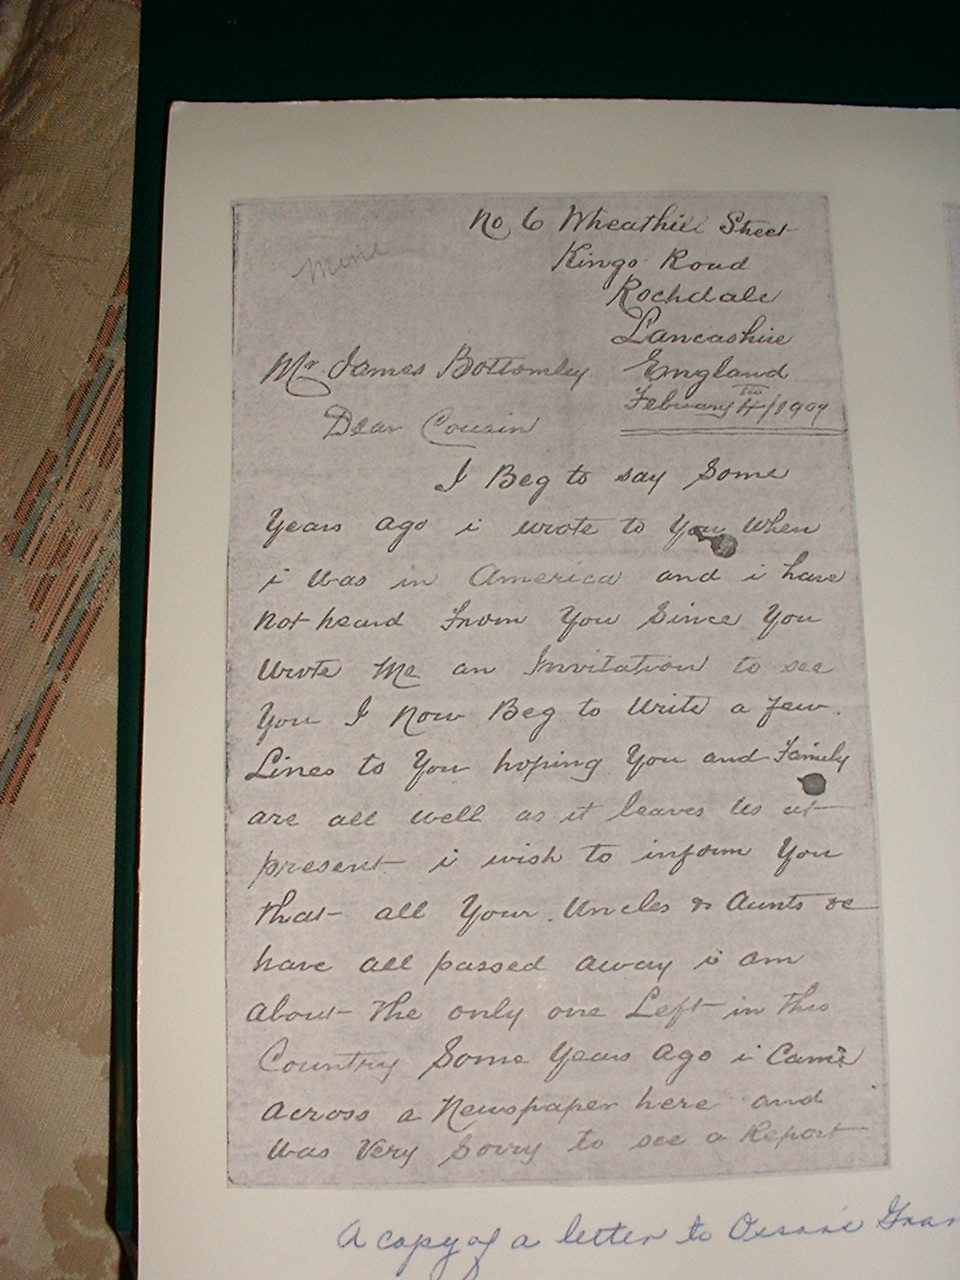 No 6 Wheathill Street
Kings Road
Rochdale
Lancashire
Mr James Bottomley England
February 4th/1907
Dear Cousin
I Beg to say Some
Years ago i wrote to You When
i was in America and i have
Not heard From You Since You
Wrote Me an Invitation to see
You I Now Beg to Write a few
Lines to You hoping You and Family
are all well as it leaves Us at
present i wish to inform You
that all Your Uncles & Aunts &c
have all passed away i am
about the only one Left in this
Country Some Years Ago i Came
Across a Newspaper here and
Was Very Sorry to see a Report
A copy of a letter to